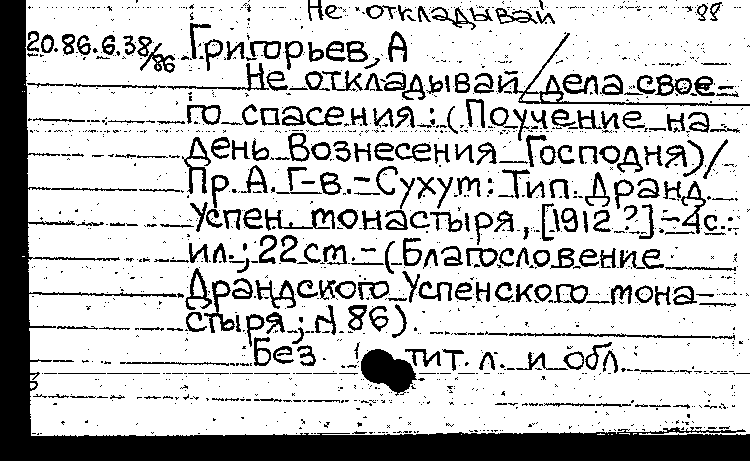 Не откладывай 88
20.86.6.38/86 Григорьев, А
Не откладывай/дела свое-
го спасения : (Поучение на
день Вознесения Господня)/
Пр. А. Г-в.-Сухум: Тип. Дранд.
Успен. монастыря, [1912 ?].-4с.:
ил.; 22 cm. - (Благословение
Драндского Успенского мона-
стыря; N 86).
Без тит. л. и обл.